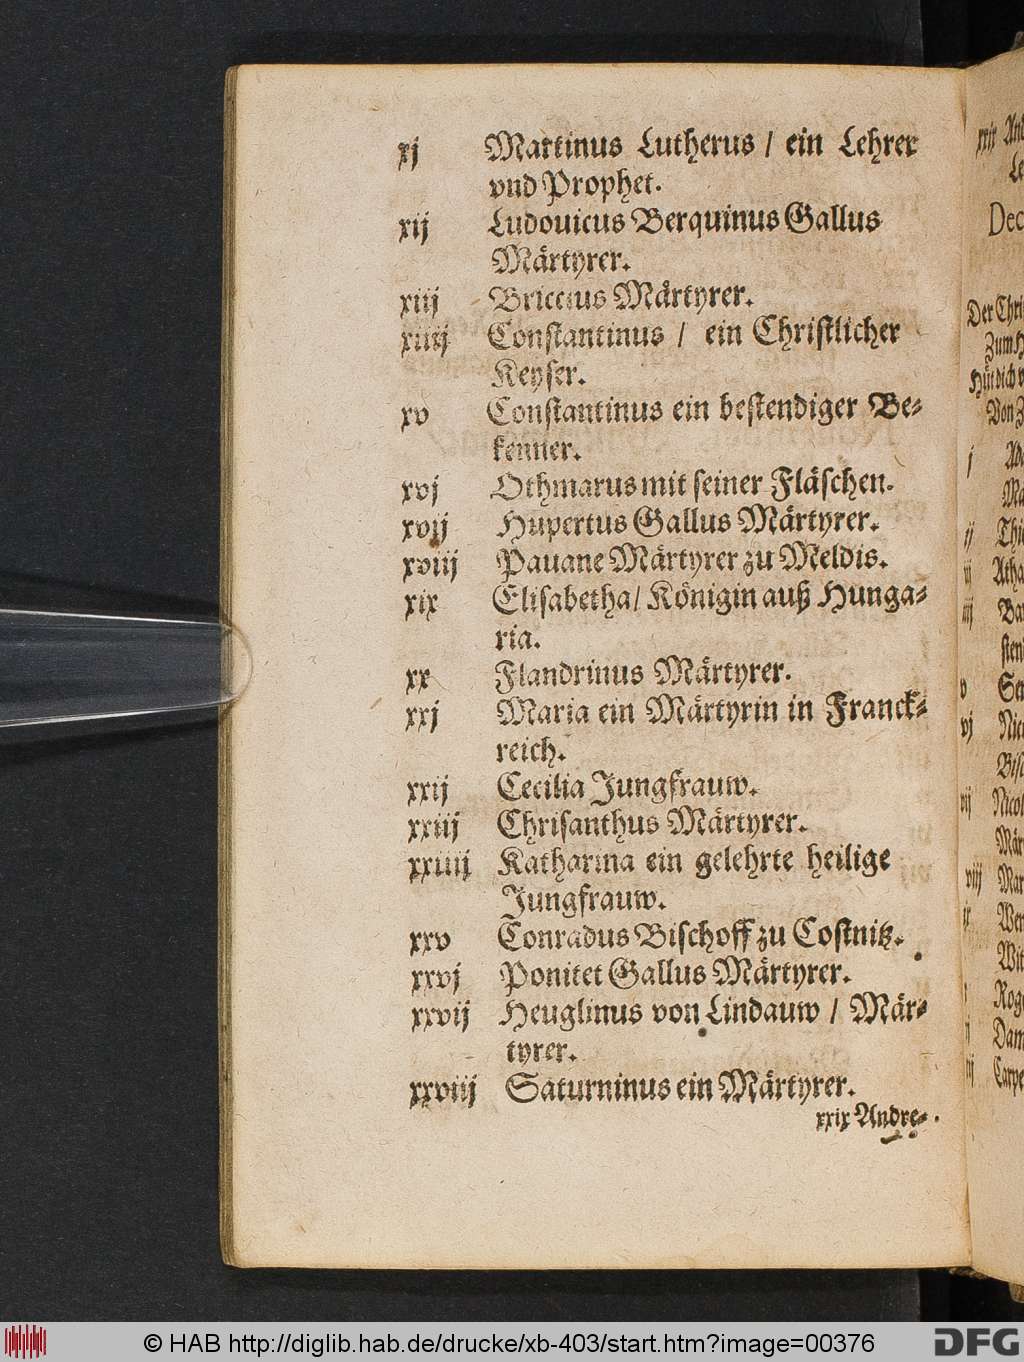 xj Martinus Lutherus / ein Lehrer
vnd Prophet.
xij Ludouicus Berquinus Gallus
Märtyrer.
xiij Briccius Märtyrer.
xiiij Constantinus / ein Christlicher
Keyser.
xv Constantinus ein bestendiger Be-
kenner.
xvj Othmarus mit seiner Fläschen.
xvij Hupertus Gallus Märtyrer.
xviij Pauane Märtyrer zu Meldis.
xix Elisabetha / Königin auß Hunga-
ria.
xx Flandrinus Märtyrer.
xxj Maria ein Märtyrin in Franck-
reich.
xxij Cecilia Jungfrauw.
xxiij Chrisanthus Märtyrer.
xxiiij Katharina ein gelehrte heilige
Jungfrauw.
xxv Conradus Bischoff zu Costnitz.
xxvj Ponitet Gallus Märtyrer.
xxvij Heuglinus von Lindauw / Mär-
tyrer.
xxviij Saturninus ein Märtyrer.
xxix Andre-
xxix And
Le
Dec
Der Chri
Zum H
Hüt dich v
Von Z
j Ade
Mä
ij Thi
Atha
Bar
sten
v Ser
vj Nic
Bisc
Nicol
Mär
viij Mar
Wen
Wit
Rog
Dam
Carpe
© HAB http://diglib.hab.de/drucke/xb-403/start.htm?image=00376
DFG